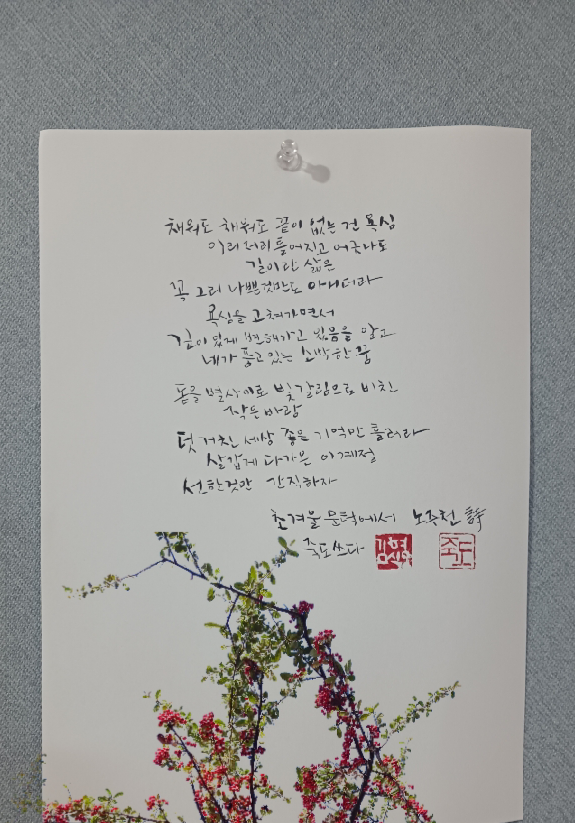 채워도 채워도 끝이 없는 건 욕심
이리저리 틀어지고 어긋나도
길이란 삶은
꼭 그리 나쁜것만도 아니더라
욕심을 고쳐가면서
깊이 있게 변해가고 있음을 알고
네가 품고 있는 소박한 꿈
돋을볕 사이로 빛갈림으로 비친
작은 바람
덧거친 세상 좋은 기억만 흘러라
살갑게 다가온 이 계절
선한것만 간직하자
초겨울 문턱에서 노중천 詩
죽도 쓰다
죽도